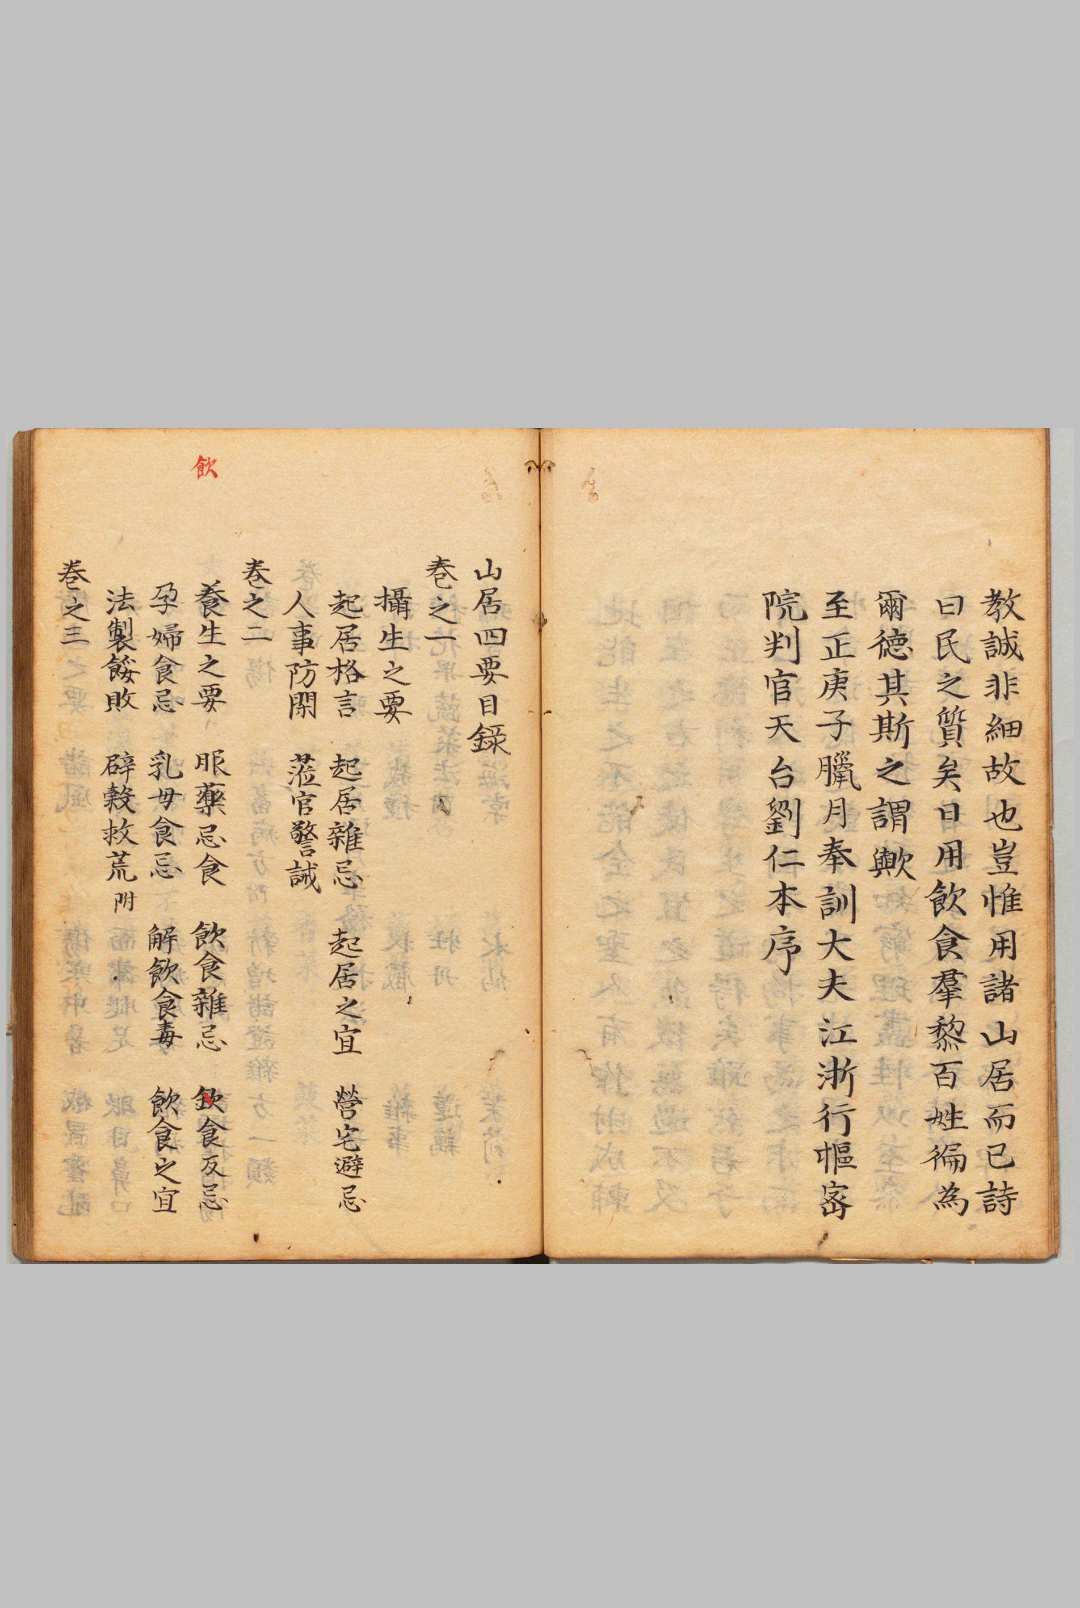 教誠非細故也豈惟用諸山居而已詩
曰民之質矣日用飲食羣黎百姓徧為
爾德其斯之謂歟
至正庚子臘月奉訓大夫江浙行樞宻
院判官天台劉仁本序
山居四要目録
巻之一
攝生之要
起居格言 起居雜忌 起居之宜 營宅避忌
人事防閑 蒞官警誡
巻之二
飲
養生之要 服藥忌食 飲食雜忌 欽食反忌
孕婦食忌 乳母食忌 解飲食毒 飲食之宜
法製餒敗 辟穀救荒附
巻之三